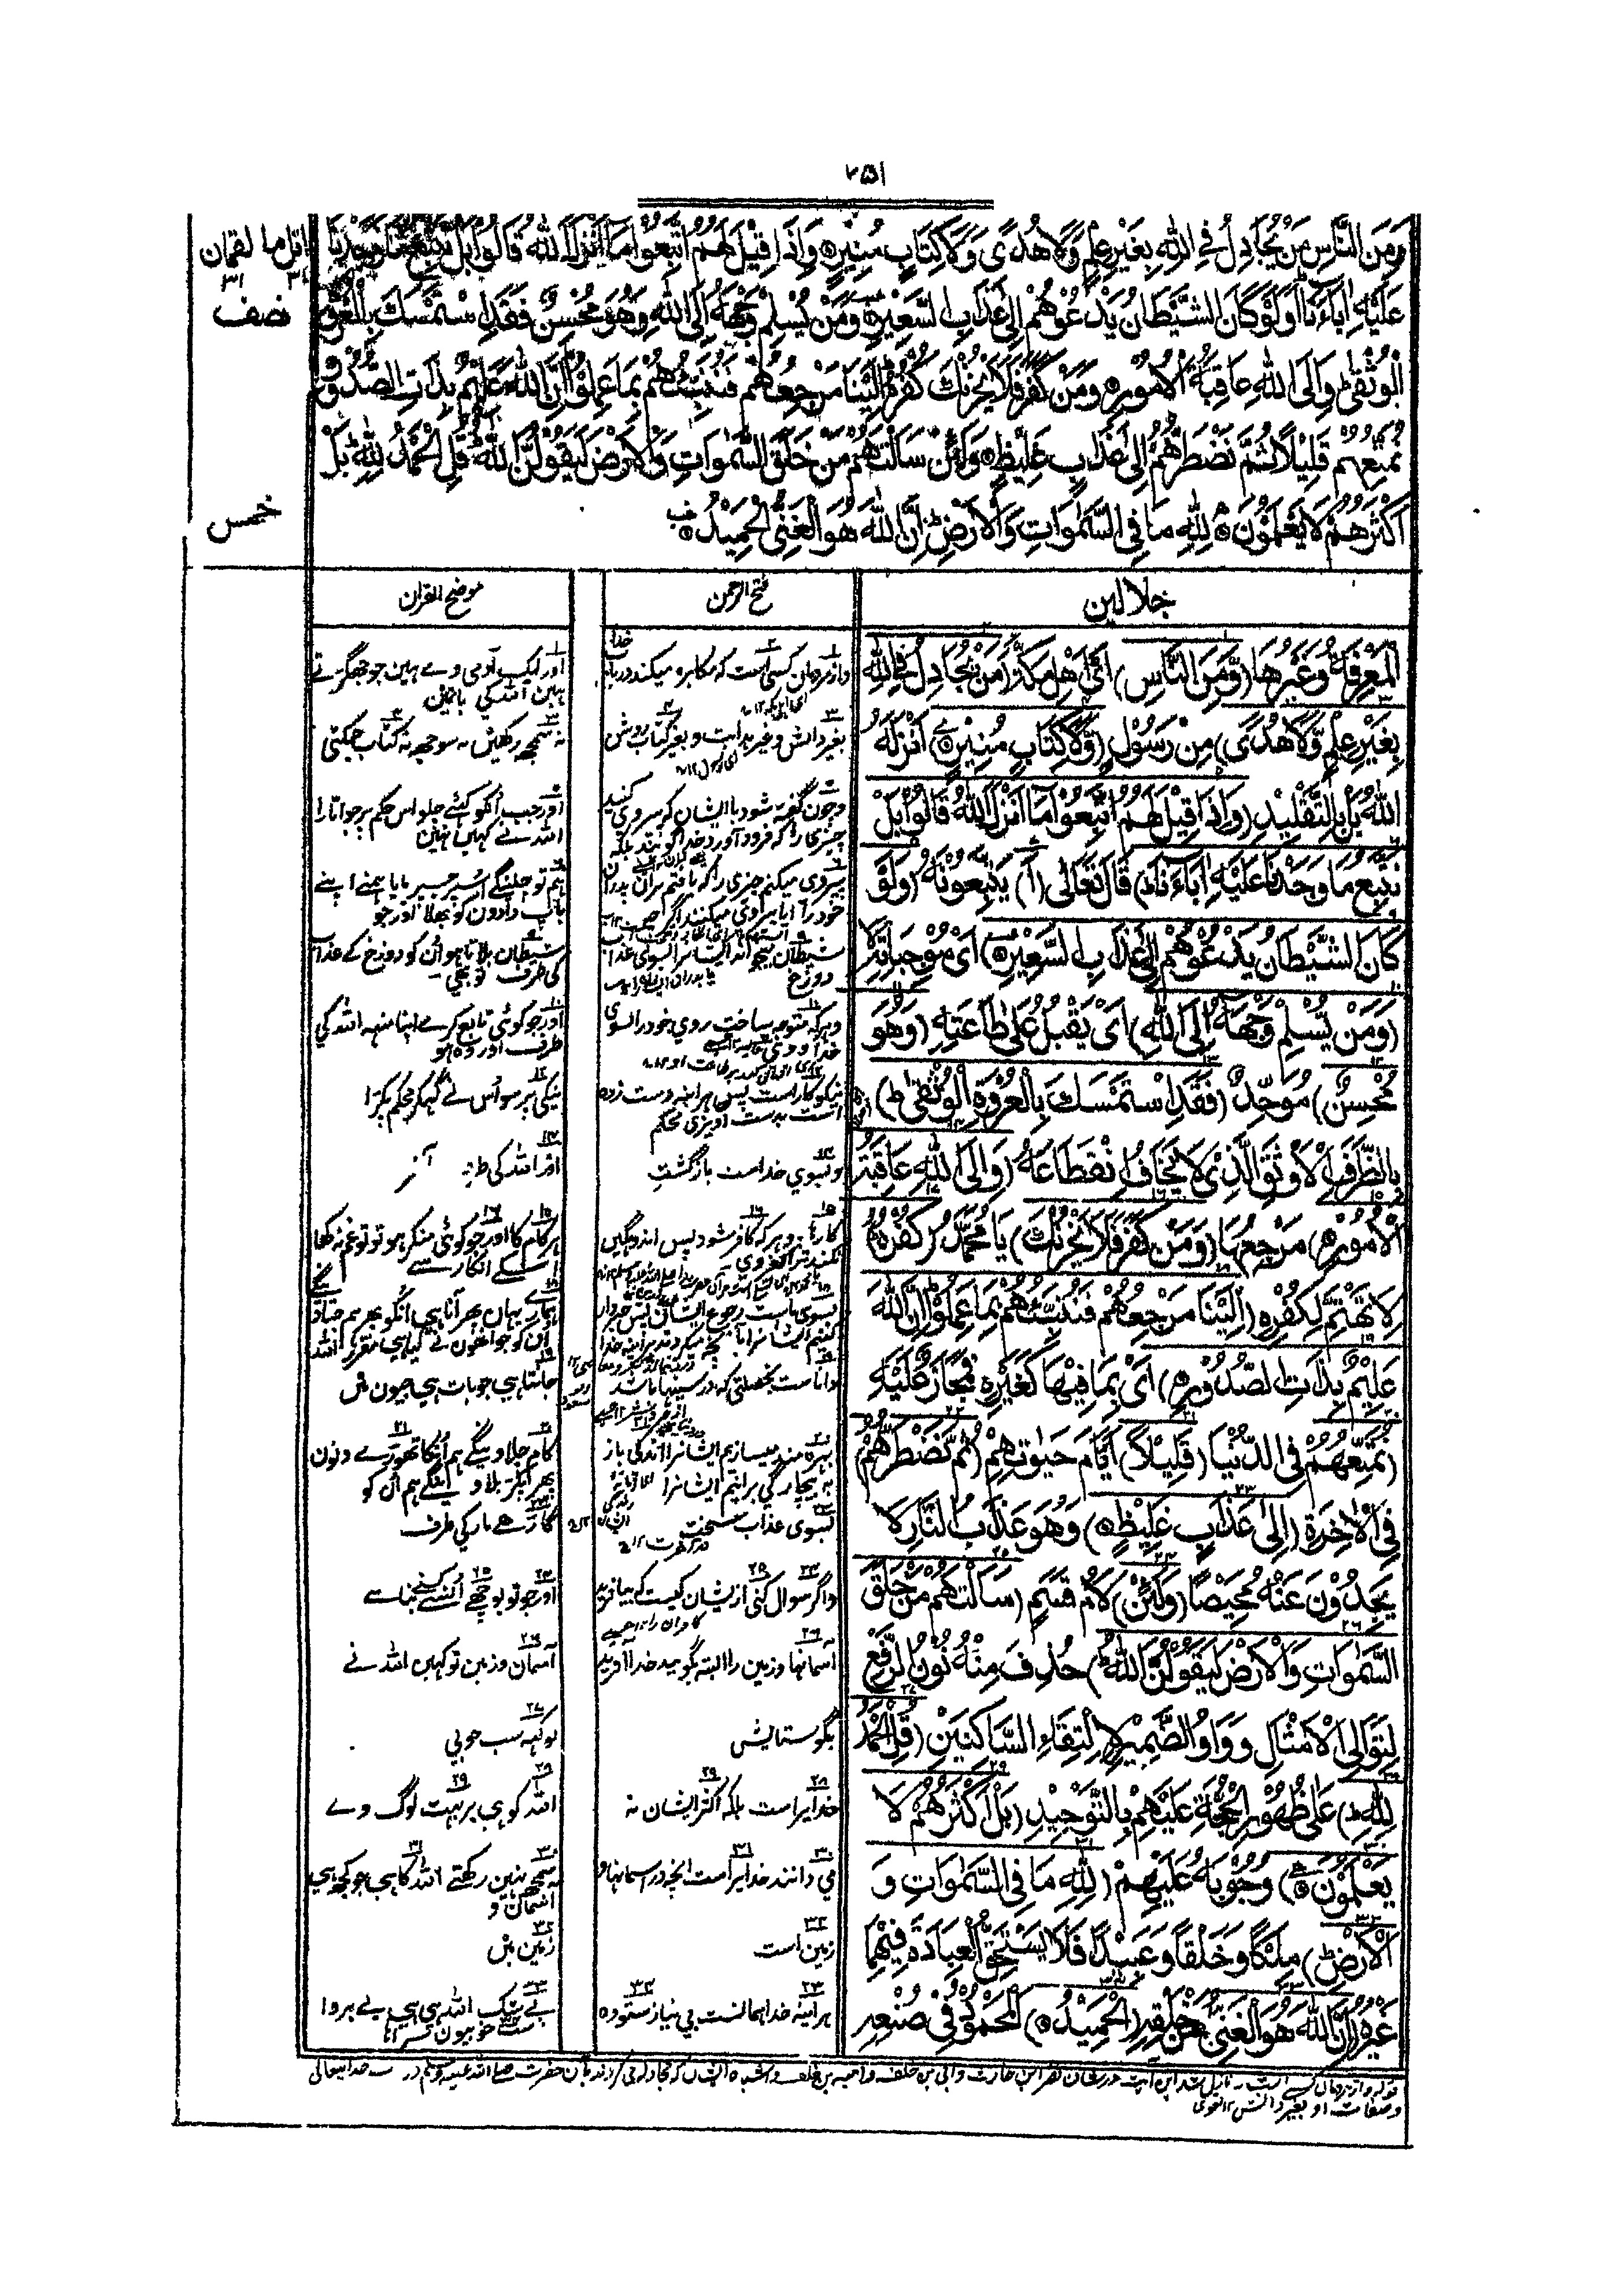 ٢٥١
وَمِنَ النَّاسِ مَنْ يُّجَادِلُ فِي اللّٰهِ بِغَيْرِ عِلْمٍ وَّلَا هُدًى وَّلَا كِتَابٍ مُّنِيْرٍ وَاِذَا قِيْلَ لَهُمُ اتَّبِعُوْا مَا اَنْزَلَ اللّٰهُ قَالُوْا بَلْ نَتَّبِعُ مَا وَجَدْنَا
اتل ما
لقمان
٣١
٣١
عَلَيْهِ اٰبَآءَنَا اَوَلَوْ كَانَ الشَّيْطَانُ يَدْعُوْهُمْ اِلٰى عَذَابِ السَّعِيْرِ وَمَنْ يُّسْلِمْ وَجْهَهٗ اِلَى اللّٰهِ وَهُوَ مُحْسِنٌ فَقَدِ اسْتَمْسَكَ بِالْعُرْوَةِ
نصف
الْوُثْقٰى وَاِلَى اللّٰهِ عَاقِبَةُ الْاُمُوْرِ وَمَنْ كَفَرَ فَلَا يَحْزُنْكَ كُفْرُهٗ اِلَيْنَا مَرْجِعُهُمْ فَنُنَبِّئُهُمْ بِمَا عَمِلُوْا اِنَّ اللّٰهَ عَلِيْمٌ بِذَاتِ الصُّدُوْرِ
نُمَتِّعُهُمْ قَلِيْلًا ثُمَّ نَضْطَرُّهُمْ اِلٰى عَذَابٍ غَلِيْظٍ وَلَئِنْ سَاَلْتَهُمْ مَنْ خَلَقَ السَّمٰوَاتِ وَالْاَرْضَ لَيَقُوْلُنَّ اللّٰهُ قُلِ الْحَمْدُ لِلّٰهِ بَلْ
اَكْثَرُهُمْ لَا يَعْلَمُوْنَ لِلّٰهِ مَا فِي السَّمٰوَاتِ وَالْاَرْضِ اِنَّ اللّٰهَ هُوَ الْغَنِيُّ الْحَمِيْدُ
خمس
جلالين
الْمَعْرِفَةِ وَغَيْرِهَا (وَّمِنَ النَّاسِ) اَىْ اَهْلِ مَكَّةَ (مَنْ يُّجَادِلُ فِي اللّٰهِ
بِغَيْرِ عِلْمٍ وَّلَا هُدًى) مِنْ رَسُوْلٍ (وَّلَا كِتَابٍ مُّنِيْرٍ) اَنْزَلَهُ
اللّٰهُ بَلْ بِالتَّقْلِيْدِ (وَاِذَا قِيْلَ لَهُمُ اتَّبِعُوْا مَا اَنْزَلَ اللّٰهُ قَالُوْا بَلْ
نَتَّبِعُ مَا وَجَدْنَا عَلَيْهِ اٰبَآءَنَا) قَالَ تَعَالٰى (اَ) يَتَّبِعُوْنَهُ (وَلَوْ
كَانَ الشَّيْطَانُ يَدْعُوْهُمْ اِلٰى عَذَابِ السَّعِيْرِ) اَىْ مُوْجِبَاتِهٖ لَا
(وَمَنْ يُّسْلِمْ وَجْهَهٗ اِلَى اللّٰهِ) اَىْ يُقْبِلُ عَلٰى طَاعَتِهٖ (وَهُوَ
مُحْسِنٌ) مُوَحِّدٌ (فَقَدِ اسْتَمْسَكَ بِالْعُرْوَةِ الْوُثْقٰى)
بِالطَّرَفِ الْاَوْثَقِ الَّذِىْ لَا يُخَافُ انْقِطَاعُهٗ (وَاِلَى اللّٰهِ عَاقِبَةُ
الْاُمُوْرِ) مَرْجِعُهَا (وَمَنْ كَفَرَ فَلَا يَحْزُنْكَ) يَا مُحَمَّدُ (كُفْرُهٗ)
لَا تَهْتَمَّ لِكُفْرِهٖ (اِلَيْنَا مَرْجِعُهُمْ فَنُنَبِّئُهُمْ بِمَا عَمِلُوْا اِنَّ اللّٰهَ
عَلِيْمٌ بِذَاتِ الصُّدُوْرِ) اَىْ بِمَا فِيْهَا كَغَيْرِهٖ فَمُجَازٍ عَلَيْهِ
(نُمَتِّعُهُمْ) فِى الدُّنْيَا (قَلِيْلًا) اَيَّامَ حَيٰوتِهِمْ (ثُمَّ نَضْطَرُّهُمْ)
فِى الْاٰخِرَةِ (اِلٰى عَذَابٍ غَلِيْظٍ) وَهُوَ عَذَابُ النَّارِ لَا
يَجِدُوْنَ عَنْهُ مَحِيْصًا (وَلَئِنْ) لَامُ قَسَمٍ (سَاَلْتَهُمْ مَنْ خَلَقَ
السَّمٰوَاتِ وَالْاَرْضَ لَيَقُوْلُنَّ اللّٰهُ) حُذِفَ مِنْهُ نُوْنُ الرَّفْعِ
لِتَوَالِى الْاَمْثَالِ وَوَاوُ الضَّمِيْرِ لِالْتِقَاءِ السَّاكِنَيْنِ (قُلِ الْحَمْدُ
لِلّٰهِ) عَلٰى ظُهُوْرِ الْحُجَّةِ عَلَيْهِمْ بِالتَّوْحِيْدِ (بَلْ اَكْثَرُهُمْ لَا
يَعْلَمُوْنَ) وُجُوْبَهٗ عَلَيْهِمْ (لِلّٰهِ مَا فِى السَّمٰوَاتِ وَ
الْاَرْضِ) مِلْكًا وَخَلْقًا وَعَبِيْدًا فَلَا يَسْتَحِقُّ الْعِبَادَةَ فِيْهِمَا
غَيْرُهٗ (اِنَّ اللّٰهَ هُوَ الْغَنِىُّ) عَنْ خَلْقِهٖ (الْحَمِيْدُ) الْمَحْمُوْدُ فِىْ صُنْعِهٖ
فتح الرحمن
واز مردمان کسی است که مکابره میکند درباب
خدا
بغیر دانش و بغیر هدایت و بغیر کتاب روشن
وچون گفته شود با ایشان که پیروی کنید
چیزی را که فرود آورد خدا گویند بلکه
پیروی میکنیم چیزی را که یافتیم بران پدران
خود را آیا پیروی میکنند اگرچه
شیطان میخواند ایشانرا بسوی عذاب
دوزخ
وهرکه متوجه ساخت روي خود را بسوی
خدا و وی
نیکوکار است پس هرآینه دست زده
است بدست آویزی محکم
وبسوي خداست بازگشت
کارها وهرکه کافر شود پس اندوهگین
نکند ترا کفر وی
بسوی ماست رجوع ایشان پس خبردار
کنیم ایشانرا بآنچه میکردند هرآینه خدا
داناست بخصلتی که در سینها باشد
بهره مند میسازیم ایشانرا اندکی باز
به بیچارگي برانیم ایشانرا
بسوی عذاب سخت
واگر سوال کنی از ایشان کیست که بیافرید
آسمانها وزمین را البته گویند خدا آفرید
بگو ستایش
خدایراست بلکه اکثر ایشان نه
می دانند خدایراست آنچه در آسمانها و
زمین است
هرآینه خدا همانست بی نیاز ستوده
موضح القران
اور ایک آدمی وے ہین جو جھگڑتے
ہین اللہ کي بات مین
نہ سمجھ رکھین نہ سوجھ نہ کتاب چمکتی
اور جب اُنکو کہئے چلو اس حکم پر جو اتارا
اللہ نے کہین نہین
ہم تو چلینگے اُسپر جسپر پایا ہمنے اپنے
باپ دادون کو بھلا اور جو
شیطان بلاتا ہو اُن کو دوزخ کے عذاب
کی طرف تو بھی
اور جو کوئی تابع کرے اپنا منہہ اللہ کي
طرف اور وہ ہو
نیکی پر سو اُس نے پکڑا محکم کڑا
اور اللہ کی طرف آخر
ہر کام کا اور جو کوئی منکر ہو تو تو غم نہ کھا
اسکے انکار سے
ہمارے یہان پھر آنا ہی اُنکو پھر ہم جتا دینگے
اُن کو جو اُنھون نے کیا ہی مقرر اللہ
جانتا ہي جو بات ہي جیون مین
کام چلاوینگے ہم اُنکا تھوڑے دنون
پھر پکڑ بلاوینگے ہم اُن کو
گاڑھے مار کی طرف
اور جو تو پوچھے اُنسے کسنے بنائے
آسمان و زمین تو کہین اللہ نے
تو کہہ سب خوبي
اللہ کو ہی پر بہت لوگ وے
سمجھ نہین رکھتے اللہ کا ہی جو کچھ ہی
آسمان و
زمین مین
بے شک اللہ ہی ہی بے پروا
سب خوبیون سراہا
قوله واز مردمان کسے است
وصفات او بغیر دانش